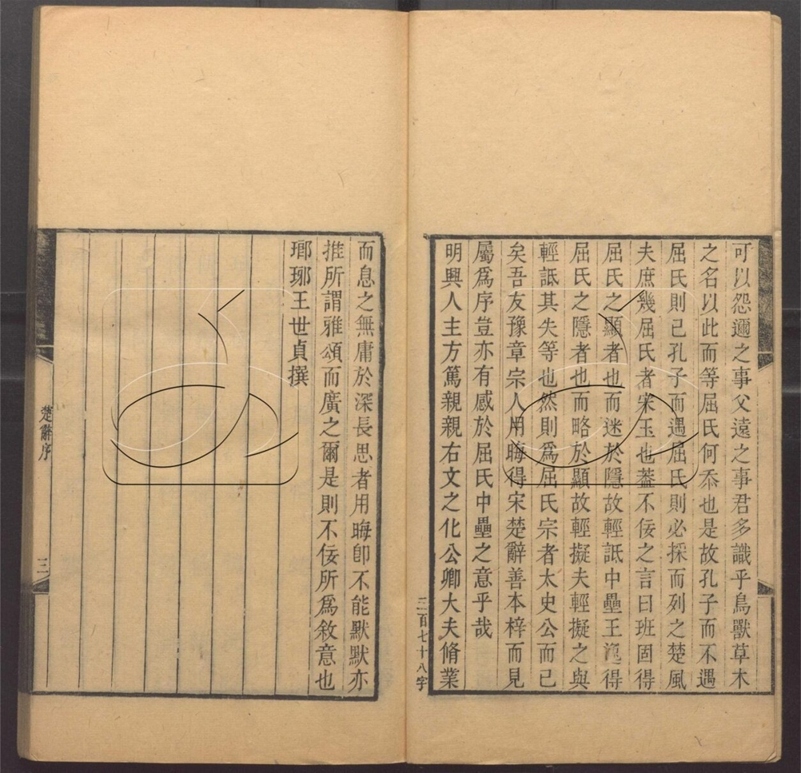 可以怨邇之事父遠之事君多識乎鳥獸草木
之名以此而等屈氏何忝也是故孔子而不遇
屈氏則已孔子而遇屈氏則必採而列之楚風
夫庶幾屈氏者宋玉也蓋不佞之言曰班固得
屈氏之顯者也而迷於隱故輕詆中壘王逸得
屈氏之隱者也而略於顯故輕擬夫輕擬之與
輕詆其失等也然則爲屈氏宗者太史公而已
矣吾友豫章宗人用晦得宋楚辭善本梓而見
屬爲序豈亦有感於屈氏中壘之意乎哉
明興人主方篤親親右文之化公卿大夫脩業
二百七十八字
而息之無庸於深長思者用晦卽不能默默亦
推所謂雅頌而廣之爾是則不佞所爲敘意也
瑯琊王世貞撰
楚辭序
三